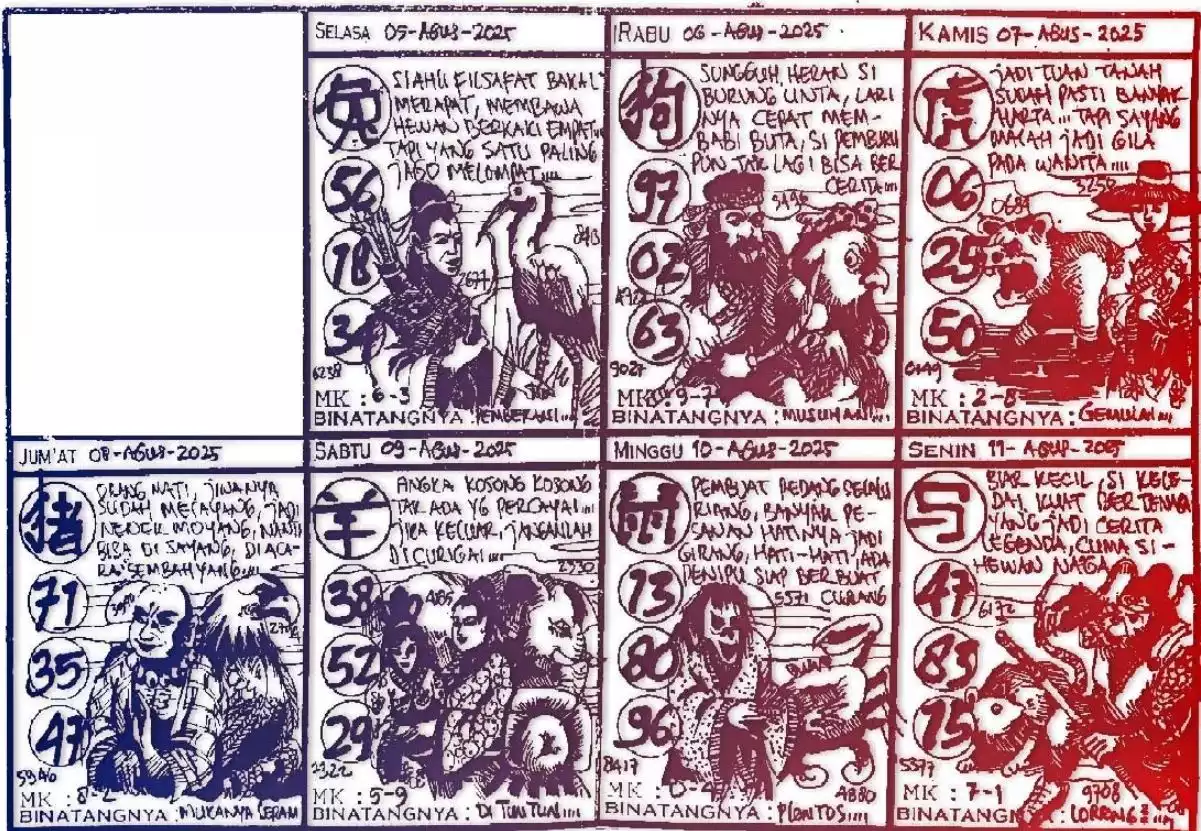 SELASA 05-AGUS-2025
兔
SI AHLI FILSAFAT BAKAL
MERAPAT, MEMBAWA
HEWAN BERKAKI EMPAT...
TAPI YANG SATU PALING
JAGO MELOMPAT....
56
78
34
0413
677
6238
MK : 6-3
BINATANGNYA : PEMBERANI....
RABU 06-AGUS-2025
狗
SUNGGUH, HERAN SI
BURUNG UNTA, LARI
NYA CEPAT MEM-
BABI BUTA, SI PEMBURU
PUN TAK LAGI BISA BER
CERITA....
97
02
63
3496
9027
MK : 9-7
BINATANGNYA : MUSUHAN....
KAMIS 07-AGUS-2025
虎
JADI TUAN TANAH
SUDAH PASTI BANYAK
HARTA... TAPI SAYANG
MALAH JADI GILA
PADA WANITA....
06
25
50
3256
0684
0149
MK : 2-8
BINATANGNYA : GEMULAI....
JUM'AT 08-AGUS-2025
猪
ORANG MATI, JIWANYA
SUDAH MELAYANG, JADI
NENEK MOYANG, NANTI
BISA DI SAYANG, DI ACA-
RA SEMBAHYANG....
71
35
47
5946
MK : 8-2
BINATANGNYA : MUKANYA SERAM
SABTU 09-AGUS-2025
羊
ANGKA KOSONG KOSONG
TAK ADA YG PERCAYA....
JIKA KELUAR, JANGANLAH
DI CURIGAI....
38
52
29
2930
2322
MK : 5-9
BINATANGNYA : DI TUNTUN....
MINGGU 10-AGUS-2025
PEMBUAT PEDANG SELALU
RIANG, BANYAK PE-
SANAN HATINYA JADI
GIRANG, HATI-HATI, ADA
PENIPU SIAP BERBUAT
CURANG
5571
13
80
96
8417
4880
MK : 0-4
BINATANGNYA : PLONTOS....
SENIN 11-AGUS-2025
BIAR KECIL, SI KELE-
DAI KUAT BERTENAGA
YANG JADI CERITA
LEGENDA, CUMA SI-
HEWAN NAGA
47
83
15
6172
5377
9708
MK : 7-1
BINATANGNYA : LORENG2....